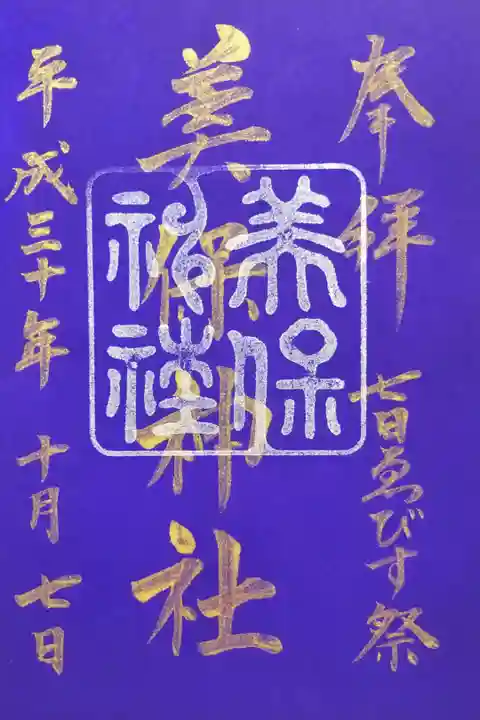 奉拝 七日ゑびす祭
美保神社
美保
神社
平成三十年 十月 七日